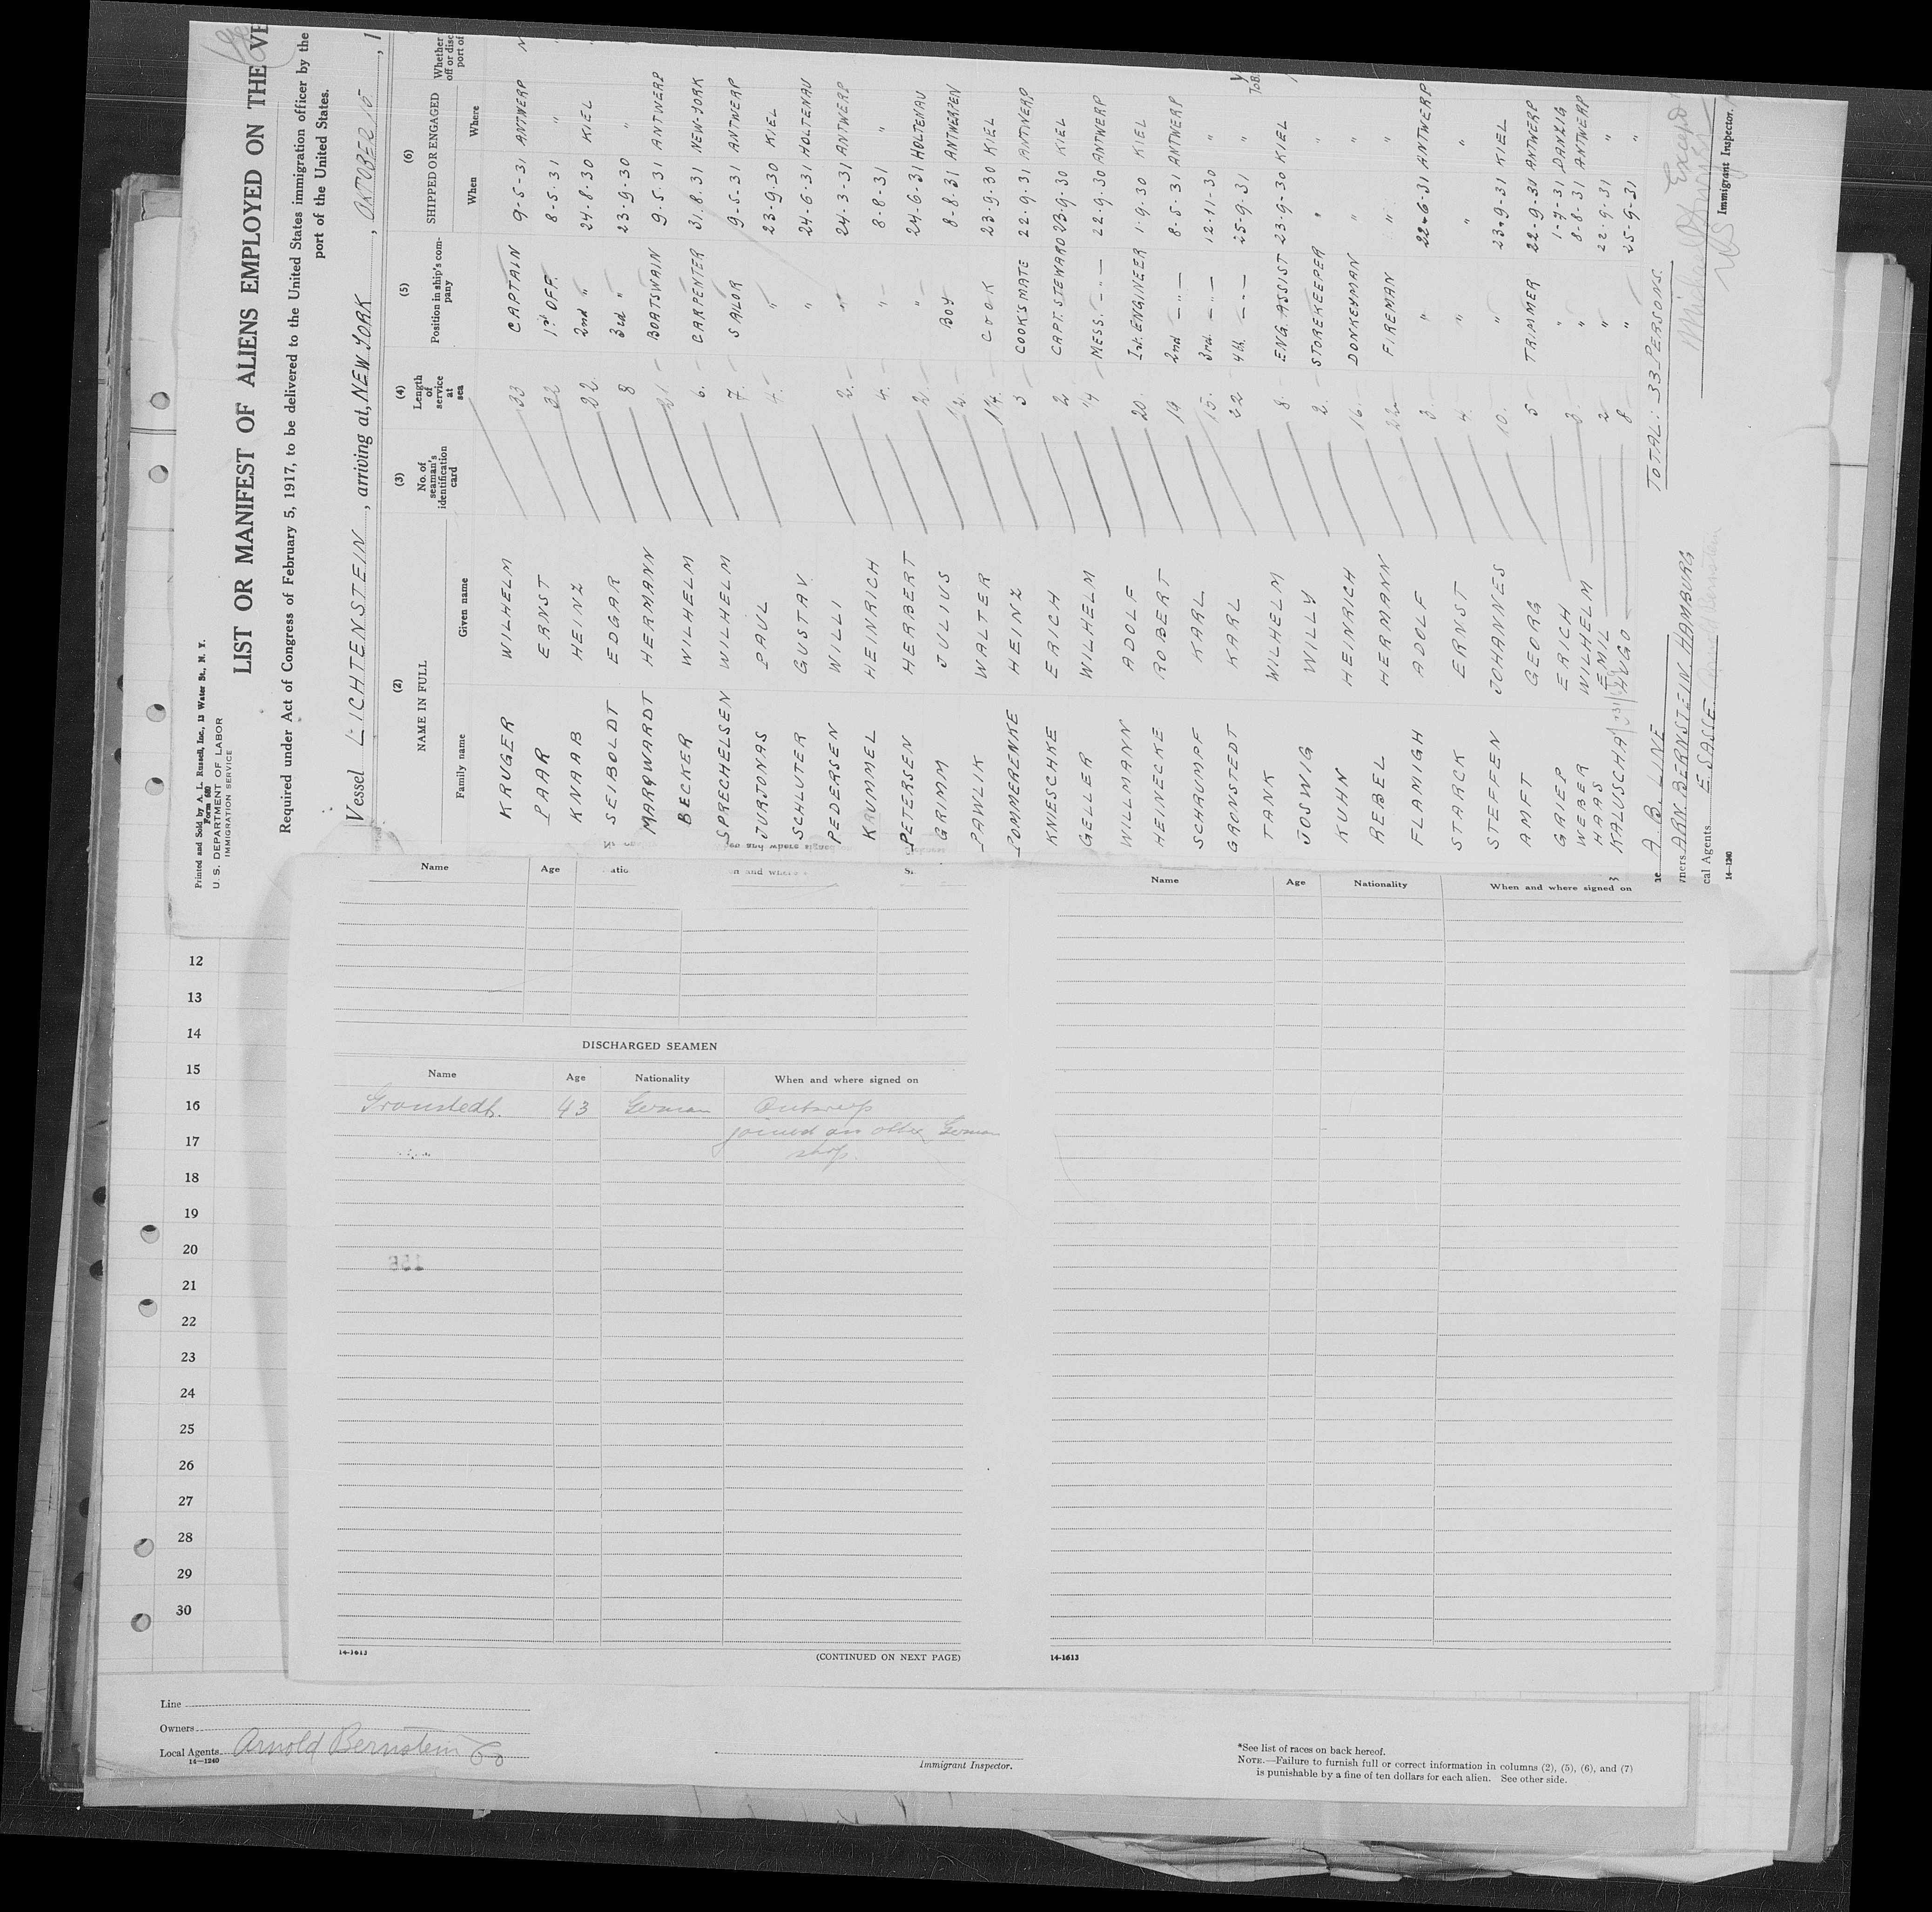 Printed and Sold by A. L. Russell, Inc., 13 Water St., N. Y.
Form 680
U. S. DEPARTMENT OF LABOR
IMMIGRATION SERVICE
LIST OR MANIFEST OF ALIENS EMPLOYED ON THE VE
Required under Act of Congress of February 5, 1917, to be delivered to the United States immigration officer by the
port of the United States.
Vessel LICHTENSTEIN, arriving at NEW YORK, OKTOBER 10, 1
(2) (3) (4) (5) (6)
NAME IN FULL No. of seaman's identification card Length of service at sea Position in ship's company SHIPPED OR ENGAGED Whether
off or disc
port of
Family name Given name When Where
KRUGER WILHELM 33 CAPTAIN 9-5-31 ANTWERP
PAAR ERNST 22 1st OFF. 8.5.31 "
KNAAB HEINZ 22 2nd " 24.8.30 KIEL
SEIBOLDT EDGAR 8 3rd " 23.9.30 "
MARQWARDT HERMANN 21 BOATSWAIN 9.5.31 ANTWERP
BECKER WILHELM 6. CARPENTER 31.8.31 NEW-YORK
SPRECHELSEN WILHELM 7. SAILOR 9-5-31 ANTWERP
JURJONAS PAUL 4. " 23.9.30 KIEL
SCHLUTER GUSTAV " 24-6-31 HOLTENAU
PEDERSEN WILLI 2. " 24-3-31 ANTWERP
KRUMMEL HEINRICH 4. " 8-8-31 "
PETERSEN HERIBERT 2. " 24-6-31 HOLTENAU
GRIMM JULIUS ½. BOY 8-8-31 ANTWERPEN
PAWLIK WALTER 14. COOK 23.9.30 KIEL
POMMERENKE HEINZ 3 COOK'S MATE 22.9.31 ANTWERP
KNIESCHKE ERICH 2 CAPT. STEWARD 23.9.30 KIEL
GELLER WILHELM ¼ MESS. -"- 22.9.30 ANTWERP
WILLMANN ADOLF 20. 1st. ENGINEER 1.9.30 KIEL
HEINECKE ROBERT 19 2nd -"- 8.5.31 ANTWERP
SCHRUMPF KARL 15. 3rd. -"- 12.11.30 "
GRONSTEDT KARL 22 4th. -"- 25-9-31 "
TANK WILHELM 8. ENG. ASSIST 23-9-30 KIEL
JOSWIG WILLY 2. STOREKEEPER " "
KUHN HEINRICH 16. DONKEYMAN " "
REBEL HERMANN 22 FIREMAN " "
FLAMIGH ADOLF 3. " 22-6-31 ANTWERP
STARCK ERNST 4. " " "
STEFFEN JOHANNES 10. " 23-9-31 KIEL
AMFT GEORG 5 TRIMMER 22-9-30 ANTWERP
GRIEP ERICH " 1-7-31 DANZIG
WEBER WILHELM 3. " 8-8-31 ANTWERP
HAAS EMIL 2 " 22.9.31 "
KALUSCHA HUGO 8 " 25-9-31 "
TOTAL: 33 PERSONS.
A. B. LINE
ners ARN. BERNSTEIN HAMBURG
cal Agents E. SASSE
14-1240
Except
Immigrant Inspector.
Name Age Name Age Nationality When and where signed on
DISCHARGED SEAMEN
Name Age Nationality When and where signed on
Gronstedt. 43 German Antwerp
joined an other German
ship.
14-1613
(CONTINUED ON NEXT PAGE)
14-1613
12
13
14
15
16
17
18
19
20
21
22
23
24
25
26
27
28
29
30
Line
Owners
Local Agents Arnold Bernstein Co
14-1240
Immigrant Inspector.
*See list of races on back hereof.
NOTE.—Failure to furnish full or correct information in columns (2), (5), (6), and (7)
is punishable by a fine of ten dollars for each alien. See other side.